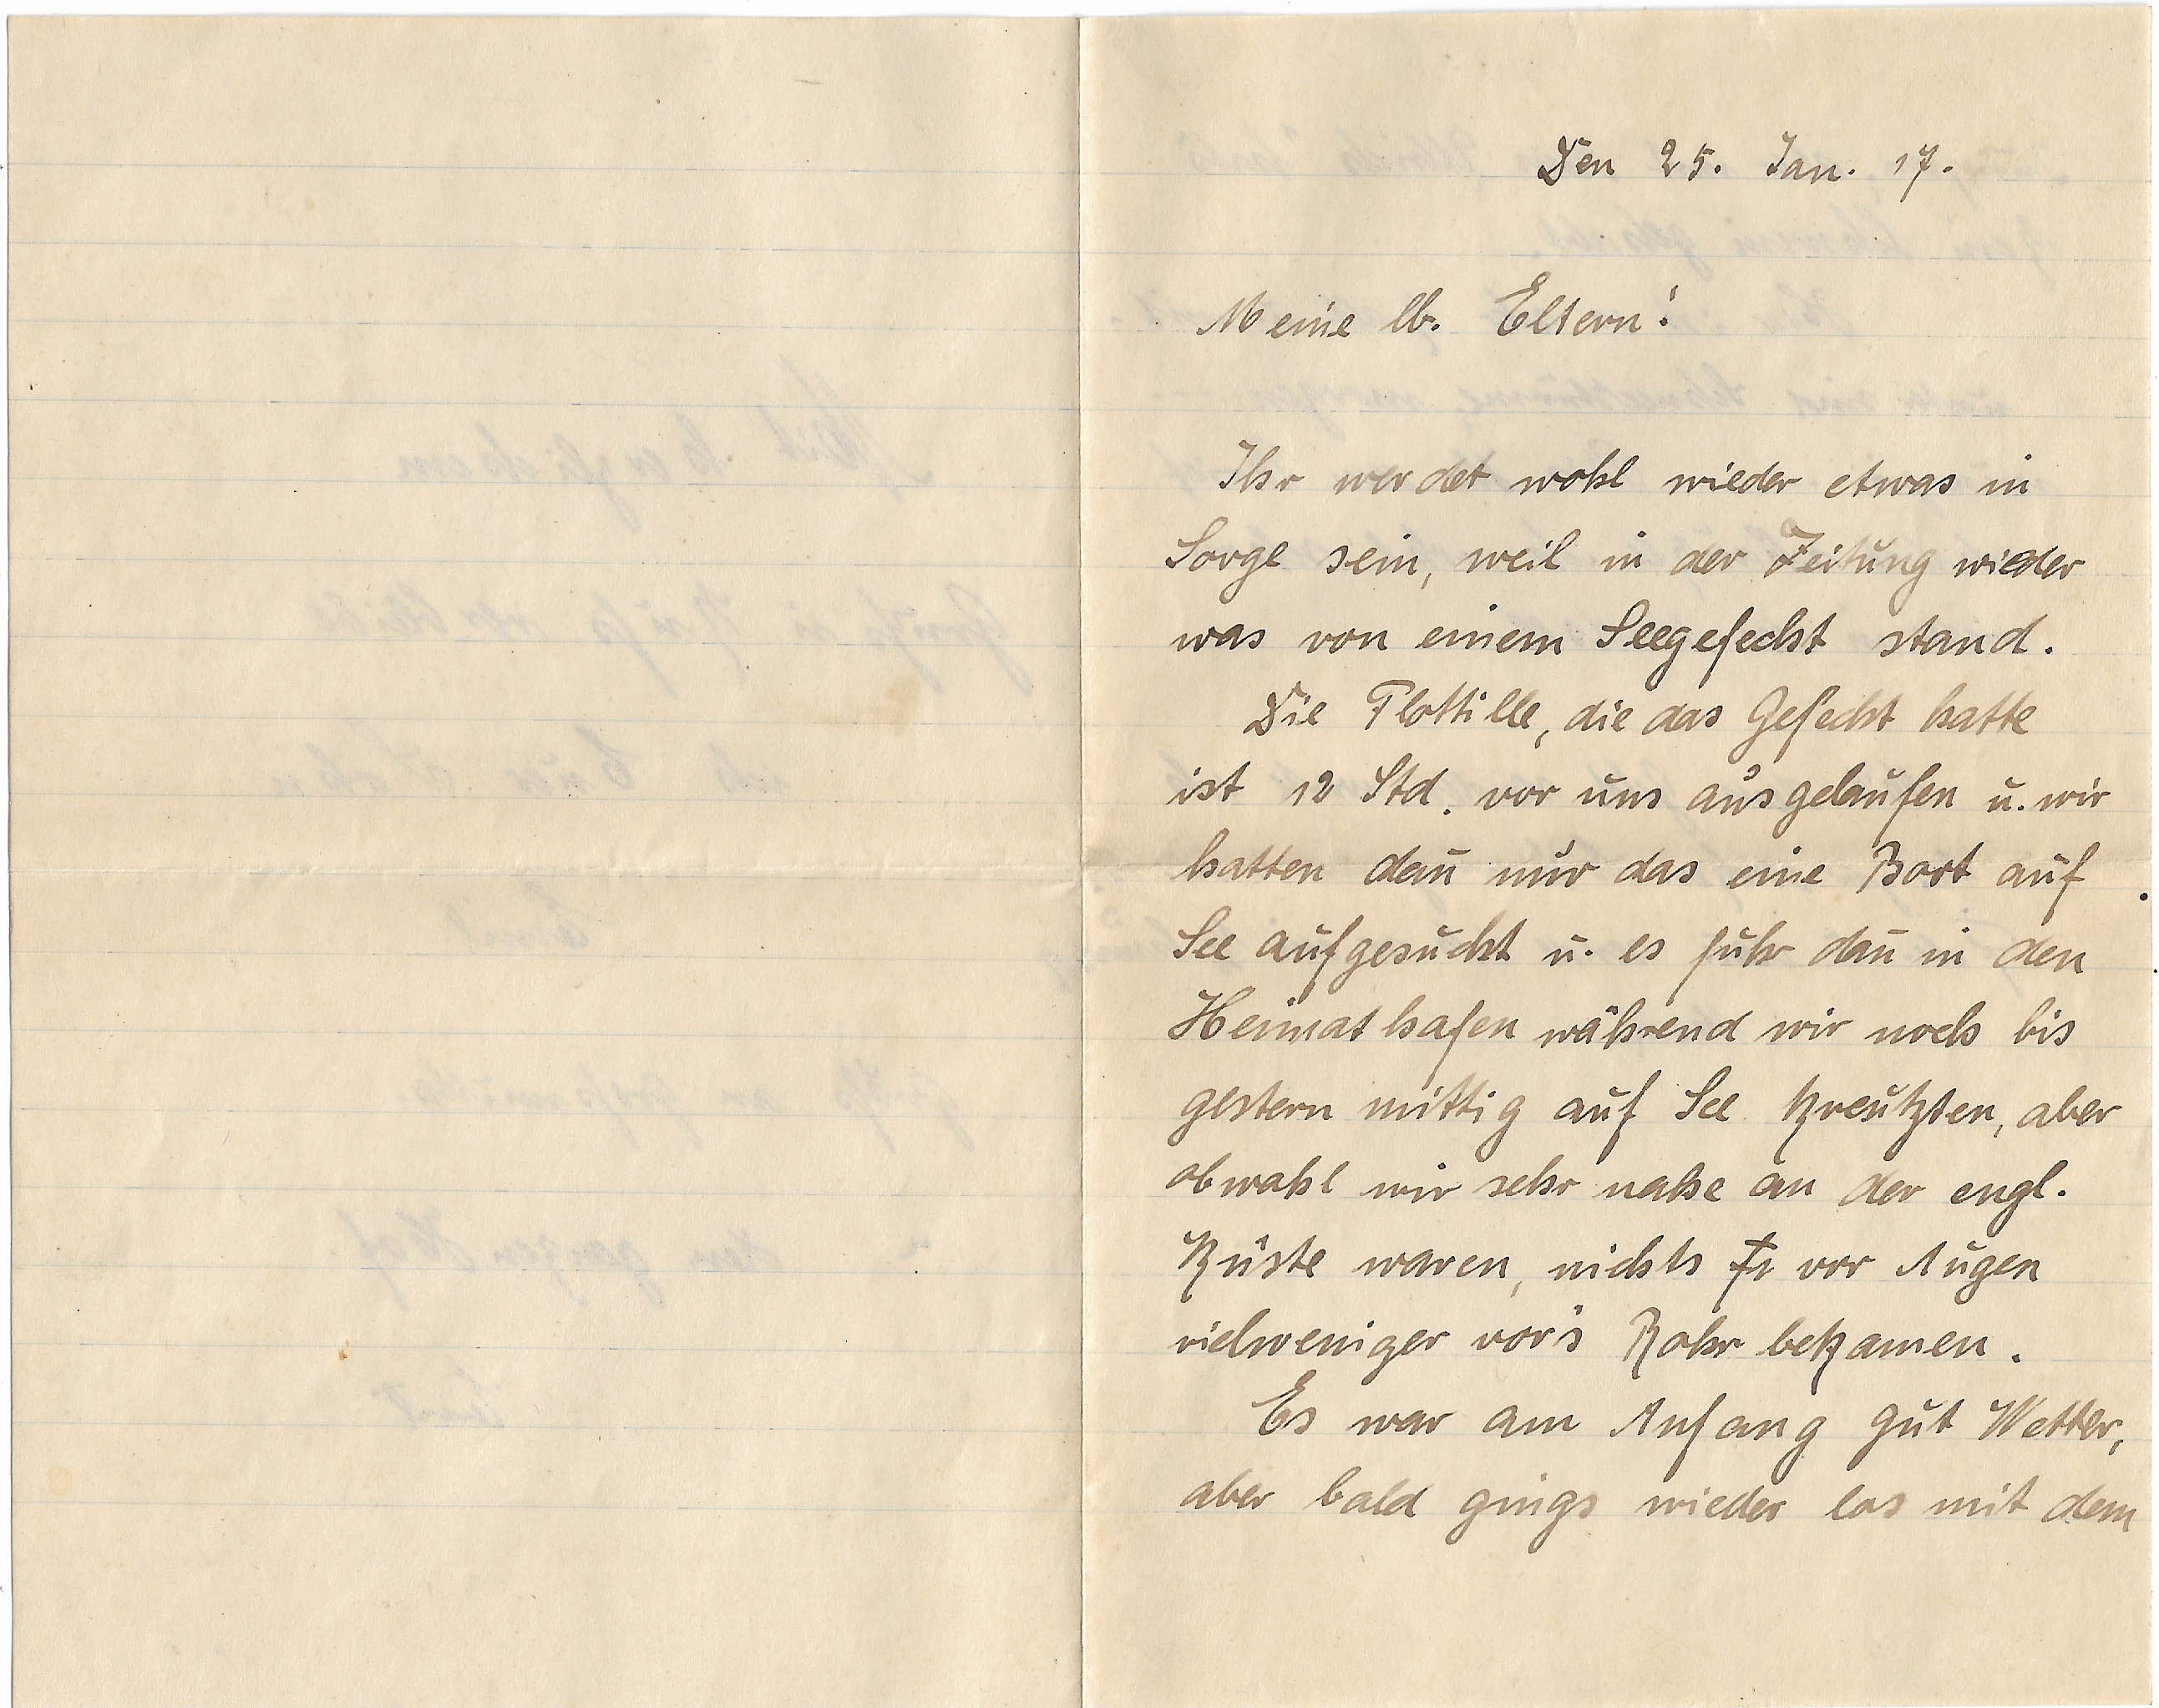 Den 25. Jan. 17.
Meine lb. Eltern!
Ihr werdet wohl wieder etwas in
Sorge sein, weil in der Zeitung wieder
was von einem Seegefecht stand.
Die Flottille, die das Gefecht hatte
ist 12 Std. vor uns ausgelaufen u. wir
hatten dan̄ nur das eine Boot auf
See aufgesucht u. es fuhr dan̄ in den
Heimathafen während wir noch bis
gestern mittig auf See kreutzten, aber
obwohl wir sehr nahe an der engl.
Küste waren, nichts vor Augen
vielweniger vor's Rohr bekamen.
Es war am Anfang gut Wetter,
aber bald gings wieder los mit dem